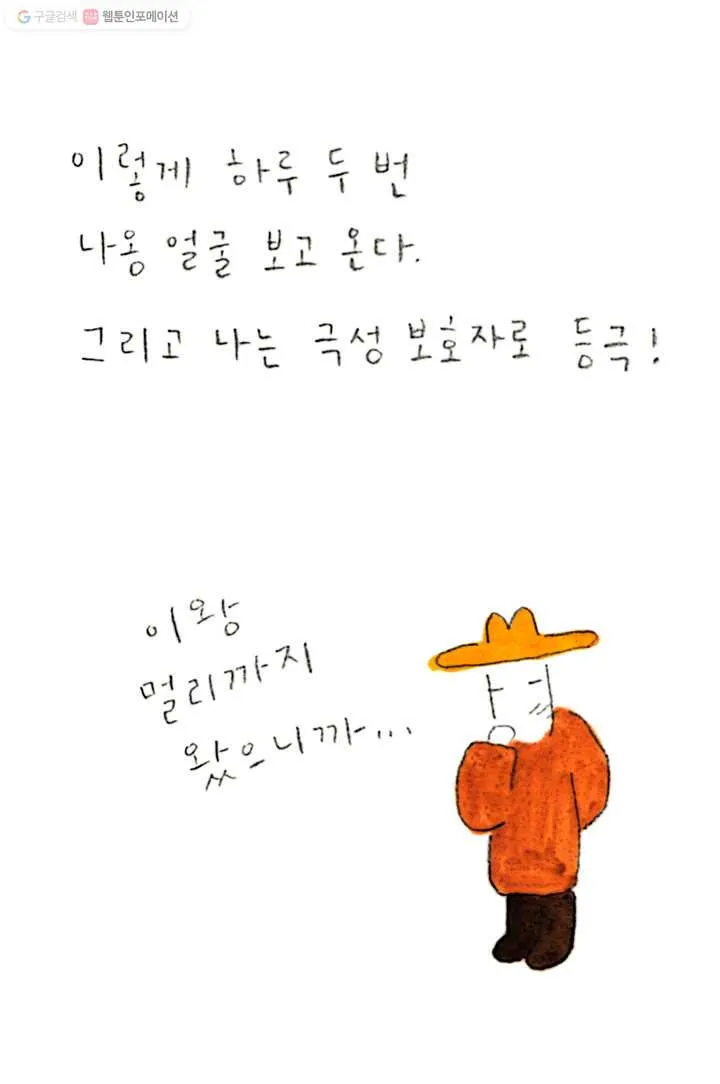 구글검색 웹툰인포메이션
이렇게 하루 두 번
나옹 얼굴 보고 온다.
그리고 나는 극성 보호자로 등극!
이왕
멀리까지
왔으니까...